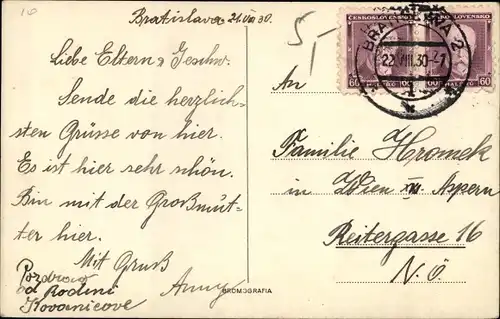 Bratislava 21.VIII 30.
Liebe Eltern u Geschw.
Sende die herzlich-
sten Grüsse von hier.
Es ist hier sehr schön.
Bin mit der Großmüt-
ter hier.
Mit Gruß
Anny
Pozdrav
od Rodini
Kovanicove
BROMOGRAFIA
ČESKOSLOVENSKO
SLOVENSKO
60
60
BRATISLAVA 2
22.VIII.30.-1
An
Familie Hromek
in Wien XXI. Aspern
Reitergasse 16
N.Ö.